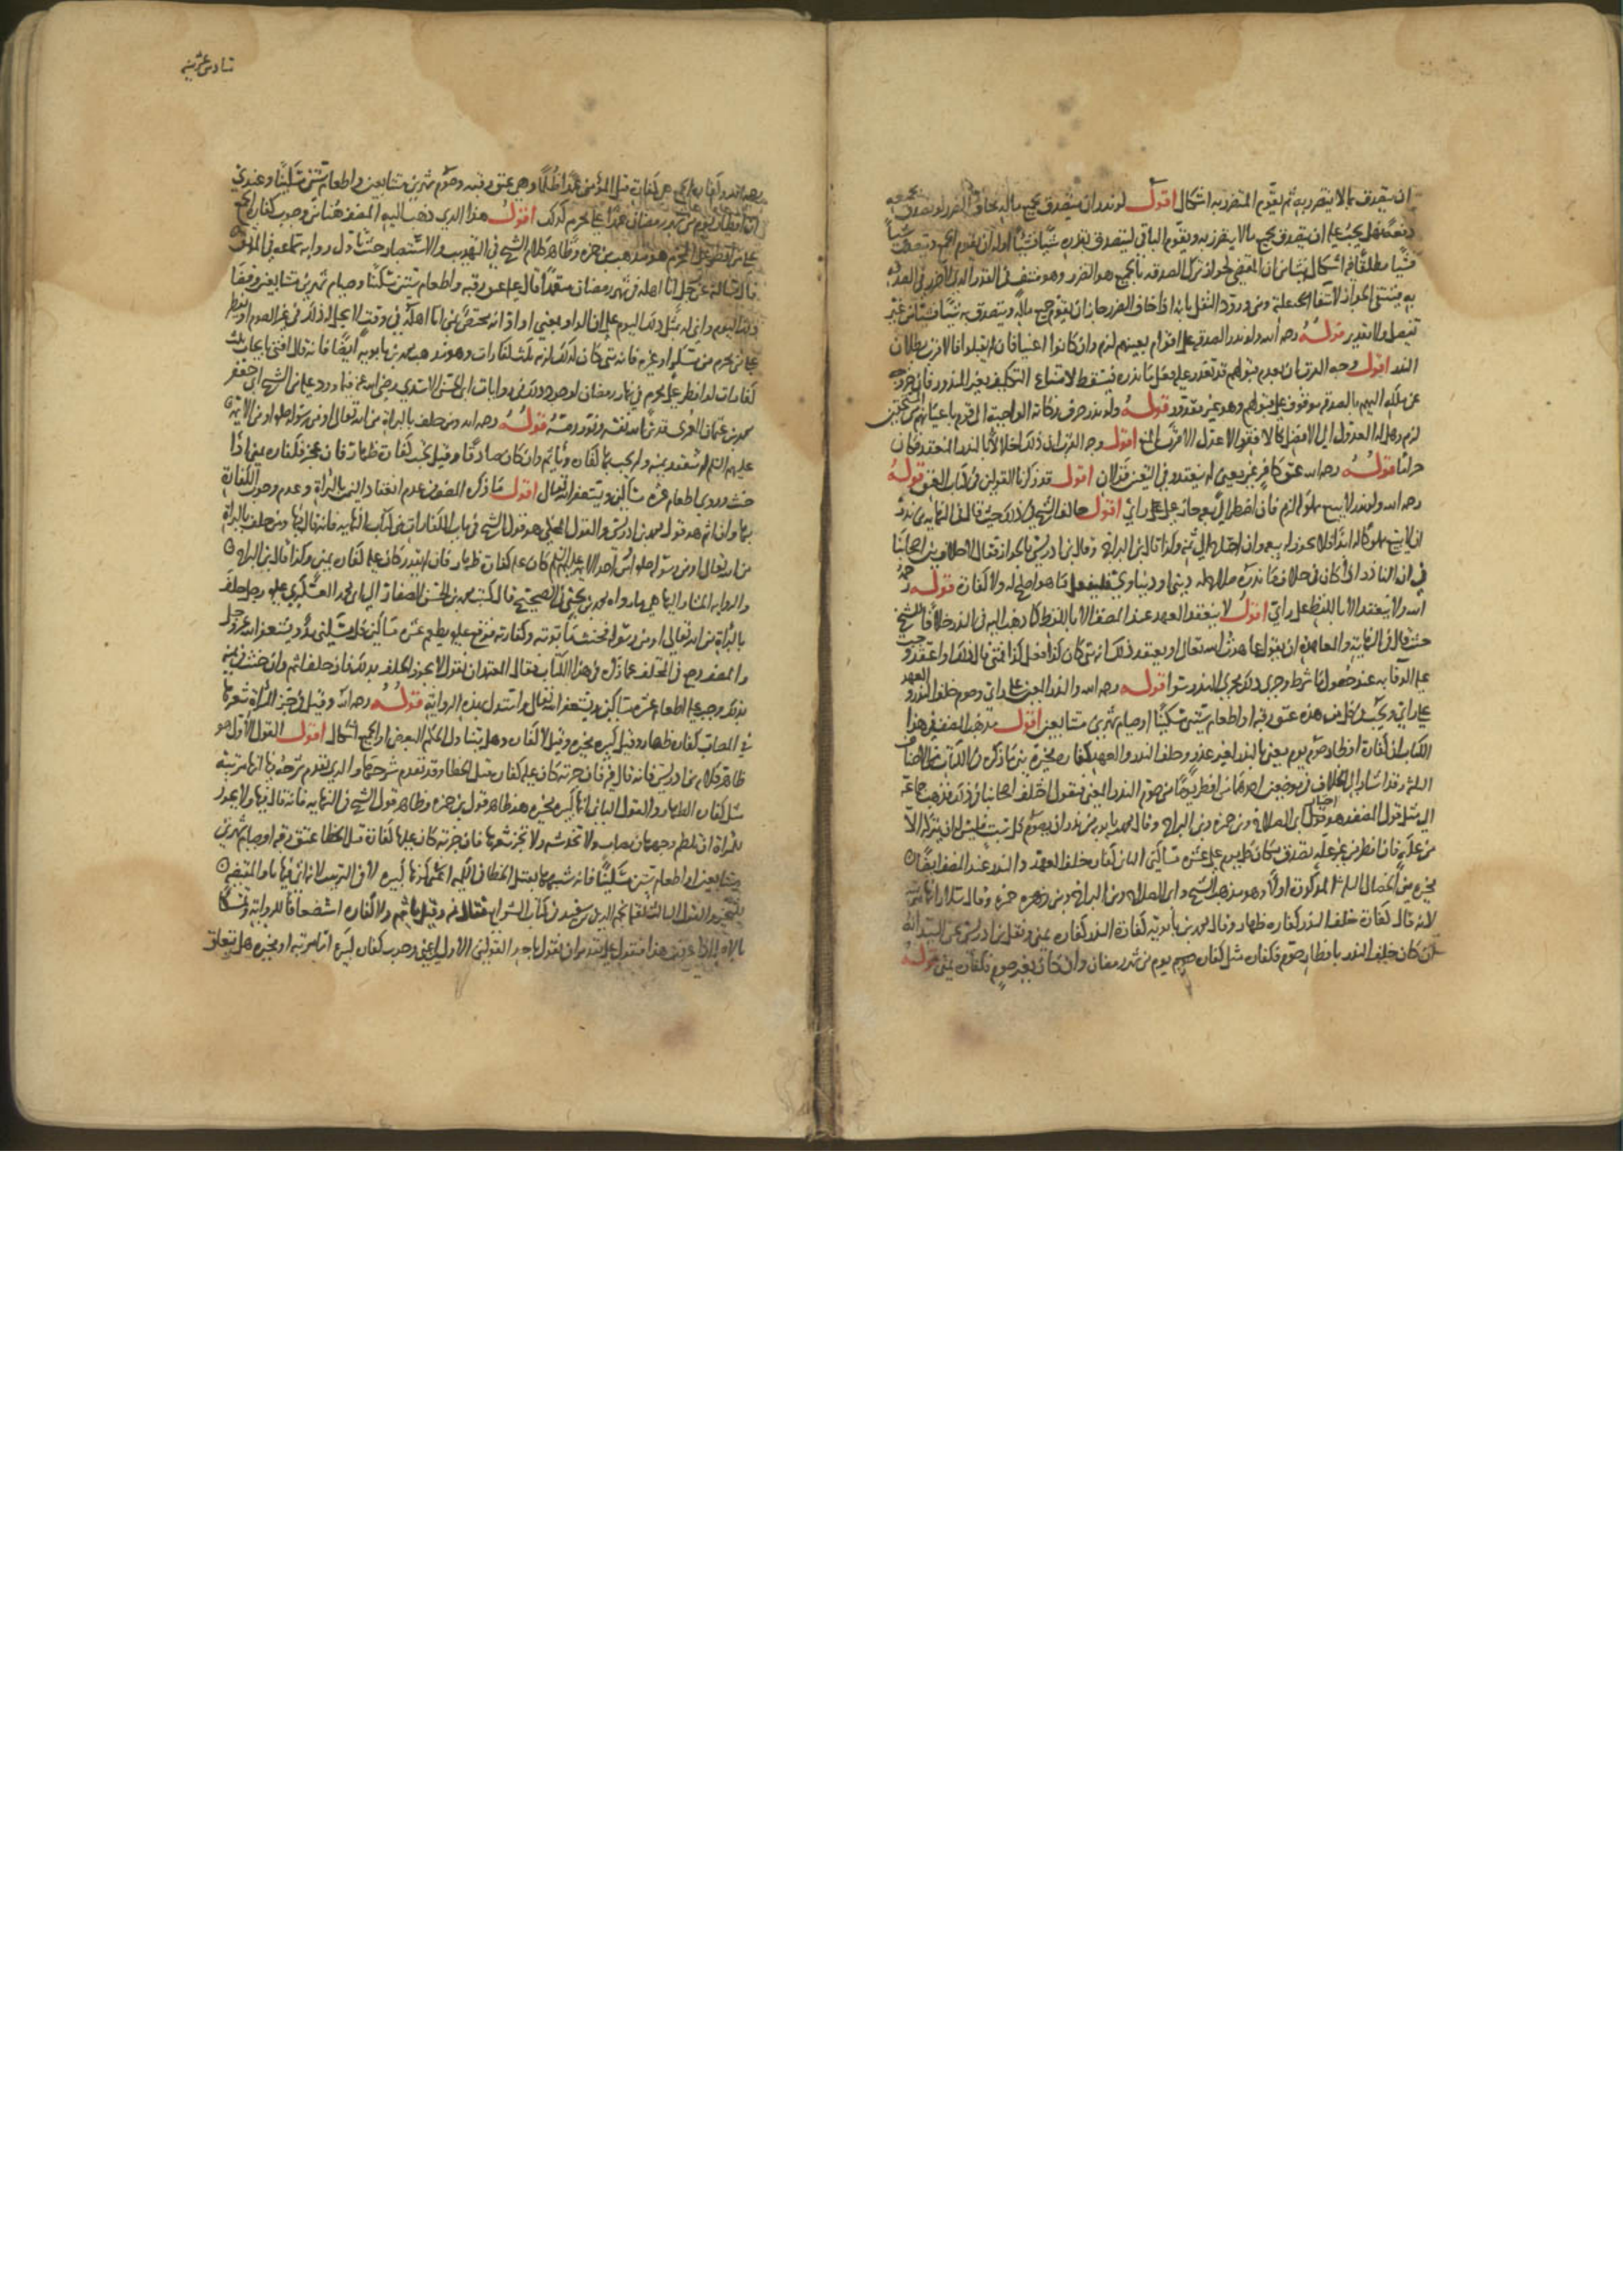 ان يتصدق بما لا يتضرر به ثم يقوم المتضرر به اشكال اقول لو نذر ان يتصدق بجميع ماله وخاف الضرر لو تصدق بجميعه
دفعة فهل يجب عليه ان يتصدق بجميع ما لا يتضرر به ويقوم الباقي ليتصدق بقدره شيئا فشيئا او له ان يقوم الجميع ويتصدق شيئا
فشيئا مطلقا فيه اشكال ينشأ من ان المقتضي لجواز ترك الصدقة بالجميع هو الضرر وهو منتف في القدر الذي لا ضرر في الصدقة
به فينتفي الجواز لانتفاء علته ومن ورود النقل بانه اذا خاف الضرر جاز ان يقوم جميع ماله ويتصدق به شيئا فشيئا من غير
تفصيل ولا تقدير قوله رحمه الله ولو نذر الصدقة على اقوام بعينهم لزم وان كانوا اغنياء فان لم يقبلوا فالاقرب بطلان
النذر اقول وجه القرب ان بعدم قبولهم قد تعذر عليه فعل ما نذره فيسقط لامتناع التكليف بغير المقدور فان خروجه
عن ملكه اليهم بالصدقة موقوف على قبولهم وهو غير مقدور قوله ولو نذر صرف زكاته الواجبة الى قوم باعيانهم من المستحقين
لزم وهل له العدول الى الافضل كالافقه والاعدل الاقرب المنع اقول وجه القرب ان ذلك اخلالا بالنذر المنعقد فكان
حراما قوله رحمه الله عتق كافر غير معين لم ينعقد وفي المعين قولان اقول قد ذكرنا القولين في كتاب العتق قوله
رحمه الله ولو نذر لا يبيع مملوكا لزم فان اضطر الى بيعه جاز على رأي اقول خالف الشيخ في ذلك حيث قال في النهاية من نذر
ان لا يبيع مملوكا له ابدا فلا يجوز له بيعه وان احتاج الى ثمنه وكذا قال ابن البراج وقال ابن ادريس بالجواز فقال لا خلاف بين اصحابنا
في ان الناذر اذا كان في خلاف ما نذره صلاح له ديني او دنياوي فليفعل ما هو اصلح له ولا كفارة قوله رحمه
الله ولا ينعقد الا باللفظ على رأي اقول لا ينعقد العهد عند المصنف الا باللفظ كما ذهب اليه في النذر خلافا للشيخ
حيث قال في النهاية والمعاهدة ان يقول عاهدت الله تعالى او يعتقد ذلك انه متى كان كذا فعلي كذا فمتى قال ذلك او اعتقد وجب
عليه الوفاء به عند حصول ما شرط وجرى ذلك مجرى النذر سواء قوله رحمه الله والنذر المعين على رأي وصوم خلف النذر والعهد
على رأي ويجب في كل من هذه عتق رقبة او اطعام ستين مسكينا او صيام شهرين متتابعين اقول مذهب المصنف في هذا
الكتاب ان كفارة افطار صوم يوم معين بالنذر لغير عذر وخلف النذر والعهد كفارة مخيرة بين ما ذكره في الكتاب من الاصناف
الثلثة وقد اشار الى الخلاف في موضعين احدهما من افطر يوما من صوم النذر المعين فنقول اختلف اصحابنا في ذلك فذهب جماعة
الى مثل قول المصنف وهو اختيار ابي الصلاح وابن حمزة وابن البراج وقال محمد بن بابويه من نذر ان يصوم كل سبت فليس له ان يتركه الا
من علة فان افطر من غير علة تصدق مكان كل يوم على عشرة مساكين الثاني كفارة خلف العهد والنذر عند المصنف ايضا
مخيرة بين الخصال الثلاث المذكورة اولا وهو مذهب الشيخ وابي الصلاح وابن البراج وابن زهرة وحمزة وقال سلار
لانه قال كفارة خلف النذر كفارة ظهار وقال محمد بن بابويه كفارة النذر كفارة يمين ونقل ابن ادريس عن السيد انه
كان خلف النذر بافطار صوم فكفارته مثل كفارة صوم يوم من شهر رمضان وان كان بغير صوم فكفارة يمين قوله
رحمه الله وكفارة الجمع هي كفارة قتل المؤمن عمدا ظلما وهي عتق رقبة وصوم شهرين متتابعين واطعام ستين مسكينا وعندي
ان افطار يوم من شهر رمضان عمدا على المحرم كذلك اقول هذا الذي ذهب اليه المصنف هنا من وجوب كفارة الجمع
على من افطر على المحرم هو مذهب ابن حمزة وظاهر كلام الشيخ في التهذيب والاستبصار حيث تاول رواية سماعة في الموثق
قال سألته عن رجل اتى اهله في شهر رمضان متعمدا قال عليه عتق رقبة واطعام ستين مسكينا وصيام شهرين متتابعين وقضاء
ذلك اليوم وانى له مثل ذلك اليوم على ان الواو بمعنى او او انه مختص بمن اتى اهله في وقت لا يحل له ذلك في غير الصوم او افطر
على شيء محرم من مسكر او غيره فانه متى كان كذلك لزمه ثلث كفارات وهو مذهب محمد بن بابويه ايضا فانه قال افتي بايجاب ثلث
كفارات لمن افطر على محرم في نهار رمضان لوجود ذلك في روايات ابي الحسين الاسدي رضي الله عنه فيما ورد عليه من الشيخ ابي جعفر
محمد بن عثمان العمري قدس الله نفسه ونور رمسه قوله رحمه الله ومن حلف بالبراءة من الله تعالى او من رسوله او من الائمة
عليهم السلم لم تنعقد يمينه ولم يجب بها كفارة ويأثم وان كان صادقا وقيل تجب كفارة ظهار فان عجز فكفارة يمين اذا
حنث وروي اطعام عشرة مساكين ويستغفر الله تعالى اقول ما ذكره المصنف من عدم انعقاد اليمين بالبراءة وعدم وجوب الكفارة
بها وانه يأثم هو قول محمد بن ادريس والقول المحكي هو قول الشيخ في باب الكفارات من كتاب النهاية فانه قال فيها ومن حلف بالبراءة
من الله تعالى او من رسوله او من احد الائمة عليهم السلم كان عليه كفارة ظهار فان لم يقدر كان عليه كفارة يمين وكذا قال ابن البراج
والرواية المشار اليها هي ما رواه محمد بن يحيى في الصحيح قال كتب محمد بن الحسن الصفار الى ابي محمد العسكري عليه السلم رجل حلف
بالبراءة من الله تعالى او من رسوله فحنث ما توبته وكفارته فوقع عليه السلم يطعم عشرة مساكين لكل مسكين مد ويستغفر الله عز وجل
والمصنف رجع في المختلف عما ذكره في هذا الكتاب فقال المعتمد ان نقول لا يجوز الحلف بذلك فان حلف اثم وان حنث في يمينه
بذلك وجب عليه اطعام عشرة مساكين ويستغفر الله تعالى واستدل بهذه الرواية قوله رحمه الله وقيل في جز المرأة شعرها
في المصاب كفارة ظهار وقيل كبيرة مخيرة وقيل لا كفارة وهل يتناول الحكم البعض او الجميع اشكال اقول القول الاول هو
ظاهر كلام ابن ادريس فانه قال فيه فان جزته كان عليها كفارة قتل الخطأ وقد تقدم شرحها والذي تقدم شرحه فيها انها مرتبة
مثل كفارة الظهار والقول الثاني انها كبيرة مخيرة هو ظاهر قول ابن حمزة وظاهر قول الشيخ في النهاية فانه قال فيها ولا يجوز
للمرأة ان تلطم وجهها في مصاب ولا تخدشه ولا تجز شعرها فان جزته كان عليها كفارة قتل الخطأ عتق رقبة او صيام شهرين
متتابعين او اطعام ستين مسكينا فانه شبهها بقتل الخطأ في الكبر اعني كونها كبيرة لا في الترتيب لانه اتى فيها باو المقتضية
للتخيير والقول الثالث لنجم الدين بن سعيد في كتاب الشرايع فقال فيه وقيل تأثم ولا كفارة استضعافا للرواية وتمسكا
بالاصل اذا عرفت هذا فنقول على تقدير ان نقول باحد القولين الاولين اعني وجوب كفارة كبيرة اما مرتبة او مخيرة هل يتعلق